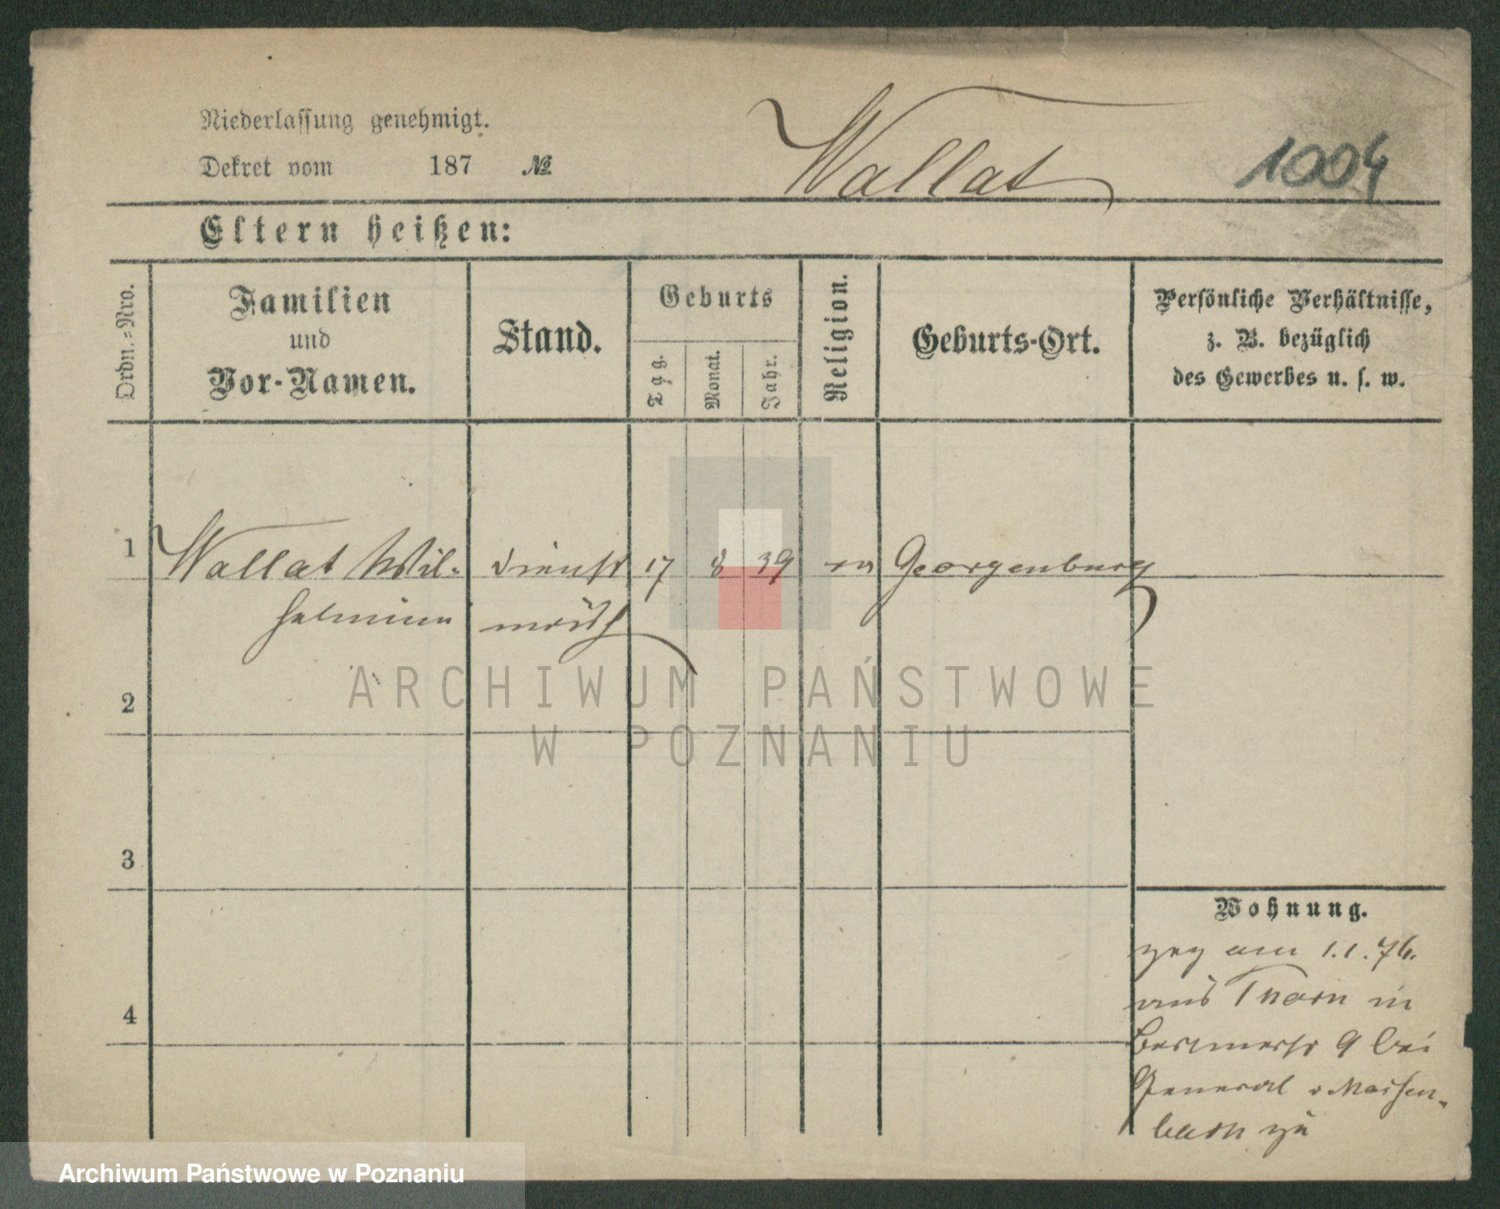 Niederlassung genehmigt.
Dekret vom 187 №
Wallat
1004
Eltern heißen:
Ordn.=Nro.
Familien
und
Vor-Namen.
Stand.
Geburts
Tag.
Monat.
Jahr.
Religion.
Geburts-Ort.
Persönliche Verhältnisse,
z. B. bezüglich
des Gewerbes u. s. w.
1 Wallat Wil- Dienst 17 8 39 ev Georgenburg
helmine mädch
2
3
4
Wohnung.
zog am 1.1.76.
aus Thorn in
9 bei
General v Massen-
bach zu
ARCHIWUM PAŃSTWOWE
W POZNANIU
Archiwum Państwowe w Poznaniu